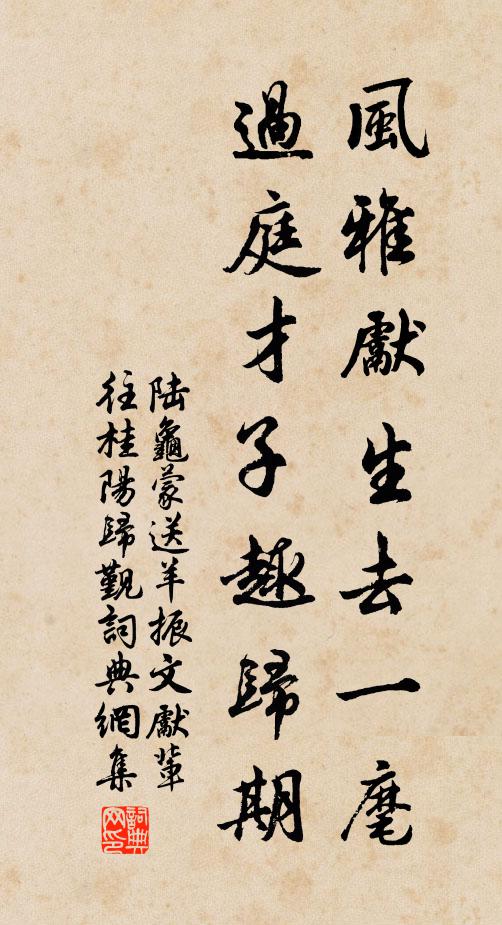 風雅獻生去一麾
過庭才子趣歸期
陆龜蒙送羊振文獻輩
往桂陽歸覲詞典網集
詞典
网印